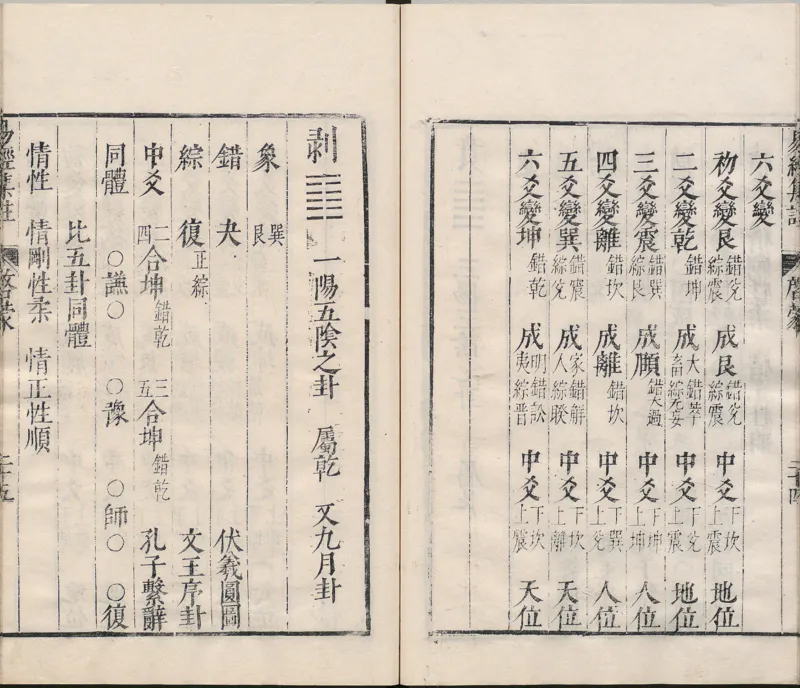 六爻變
初爻變艮 錯兌綜震 成艮 錯兌綜震 中爻 下坎上震 地位
二爻變乾 錯坤 成大畜 錯萃綜无妄 中爻 下兌上震 地位
三爻變震 錯巽綜艮 成頤 錯大過 中爻 下坤上坤 人位
四爻變離 錯坎 成離 錯坎 中爻 下巽上兌 人位
五爻變巽 錯震綜兌 成家人 錯解綜睽 中爻 下坎上離 天位
六爻變坤 錯乾 成明夷 錯訟綜晉 中爻 下坎上震 天位
剥 ䷖ 一陽五陰之卦 屬乾 又九月卦
象 巽艮
錯 夬 伏羲圓圖
綜 復 正綜 文王序卦
中爻 二四合坤 錯乾 三五合坤 錯乾 孔子繫辭
同體 ○謙○ ○豫 ○師○ ○復
比五卦同體
情性 情剛性柔 情正性順
易經集註 啓蒙 二十五